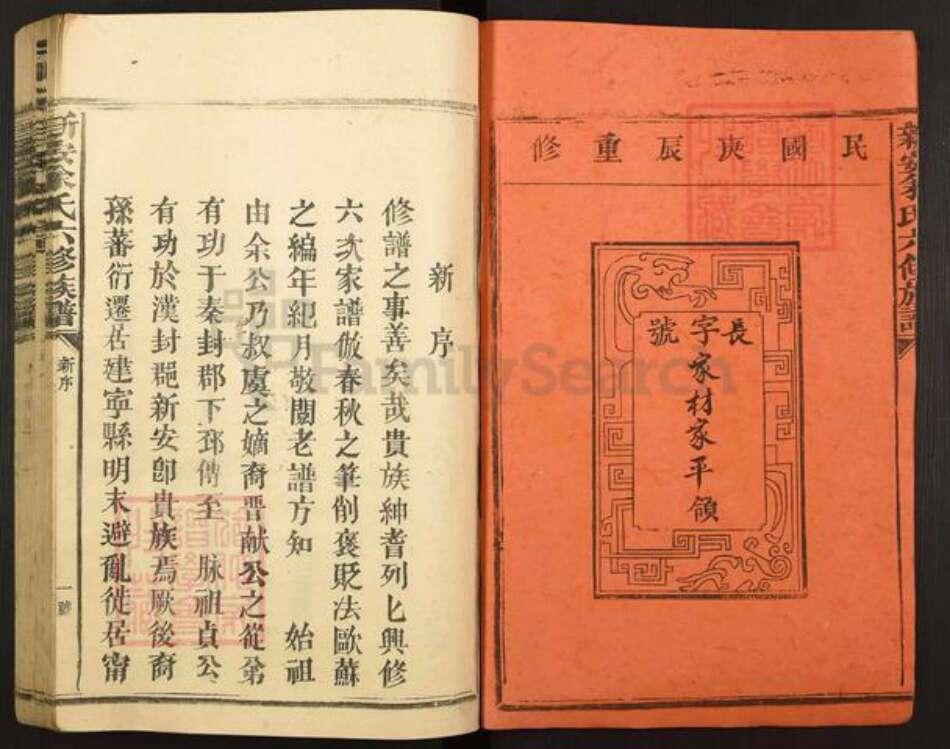 民國庚辰重修
長字號
家材家平領
新安余氏六修族譜
新序
修譜之事善矣哉貴族紳耆列匕興修
六次家譜倣春秋之筆削褒貶法歐蘇
之編年紀月敬閱老譜方知　始祖
由余公乃叔虞之嫡裔晋献公之從弟
有功于秦封郡下邳傳至　脉祖貞公
有功於漢封邑新安卽貴族焉厥後裔
孫蕃衍遷居建寧縣明末避亂徙居甯
新安余氏六修族譜
新序
一號
FamilySearch